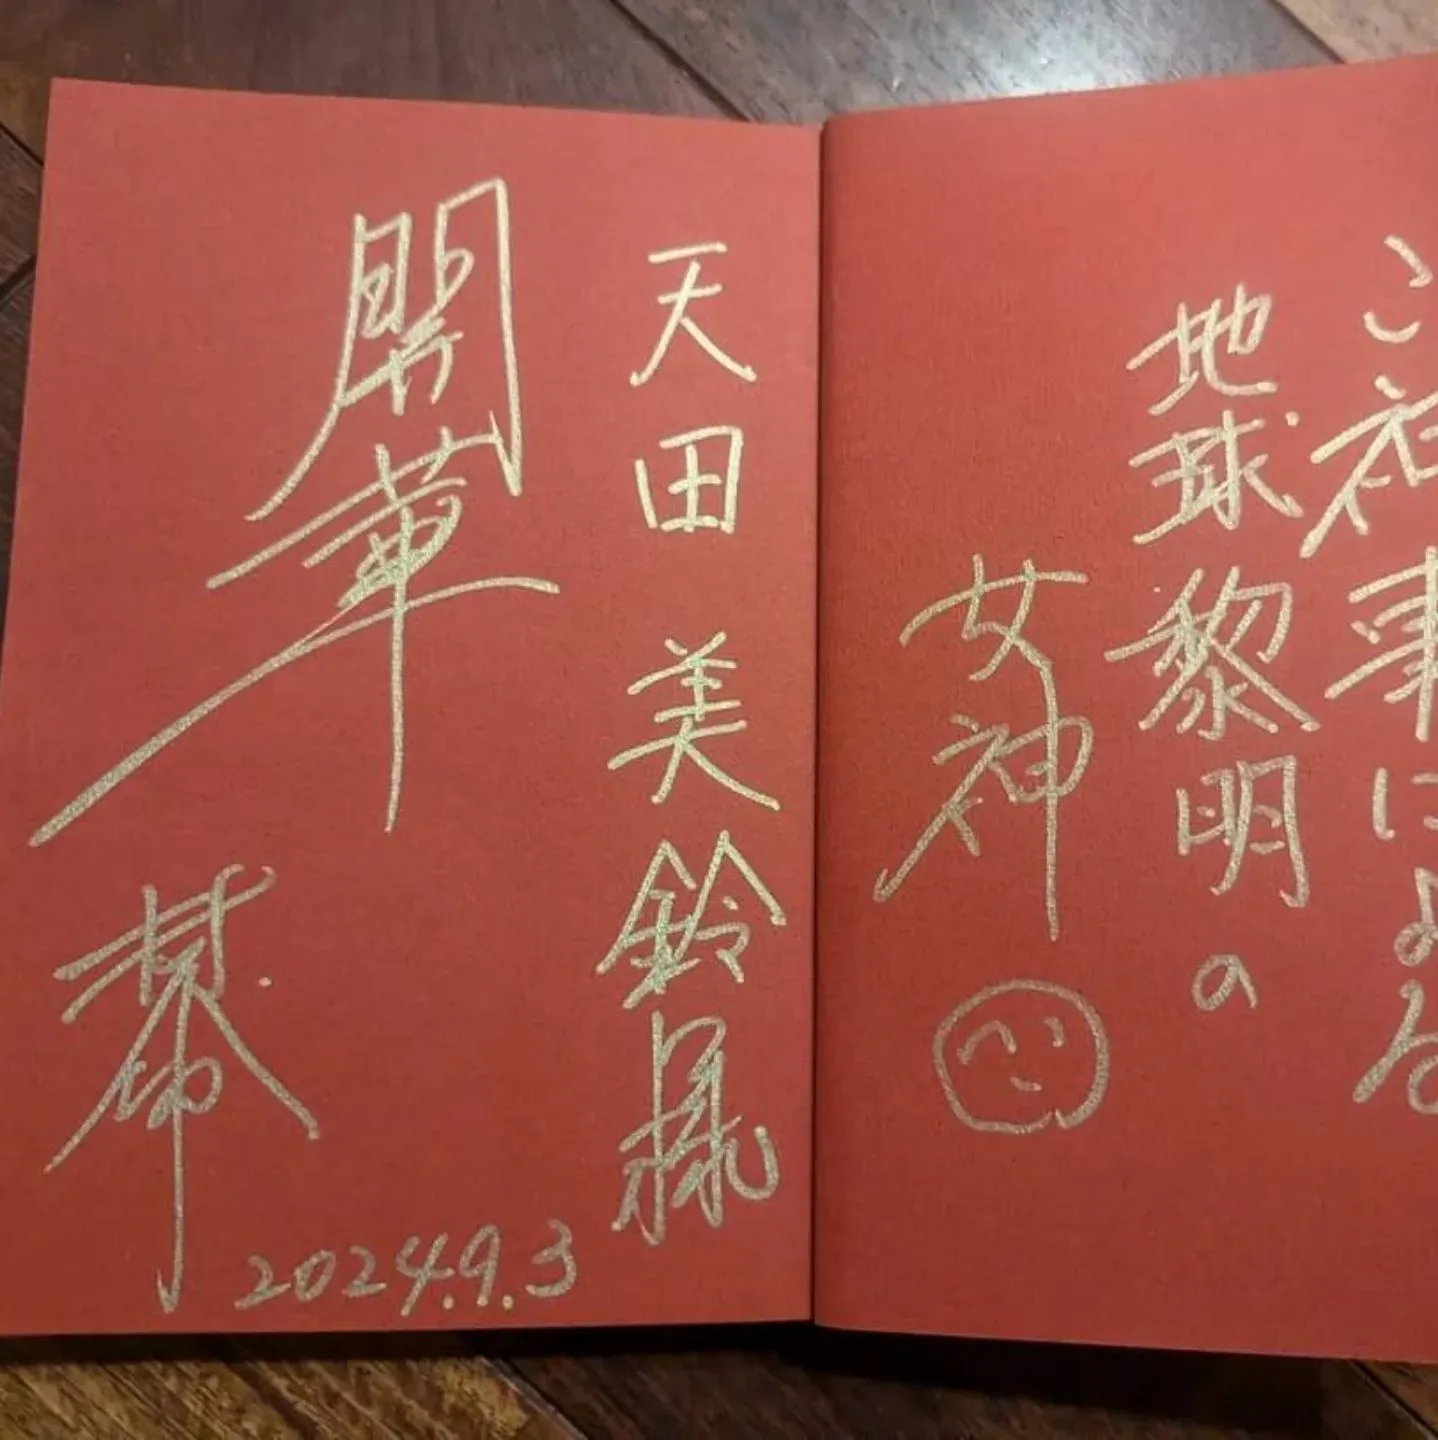 ご神事による
地球黎明の
女神
天田 美鈴
開華
2024.9.3